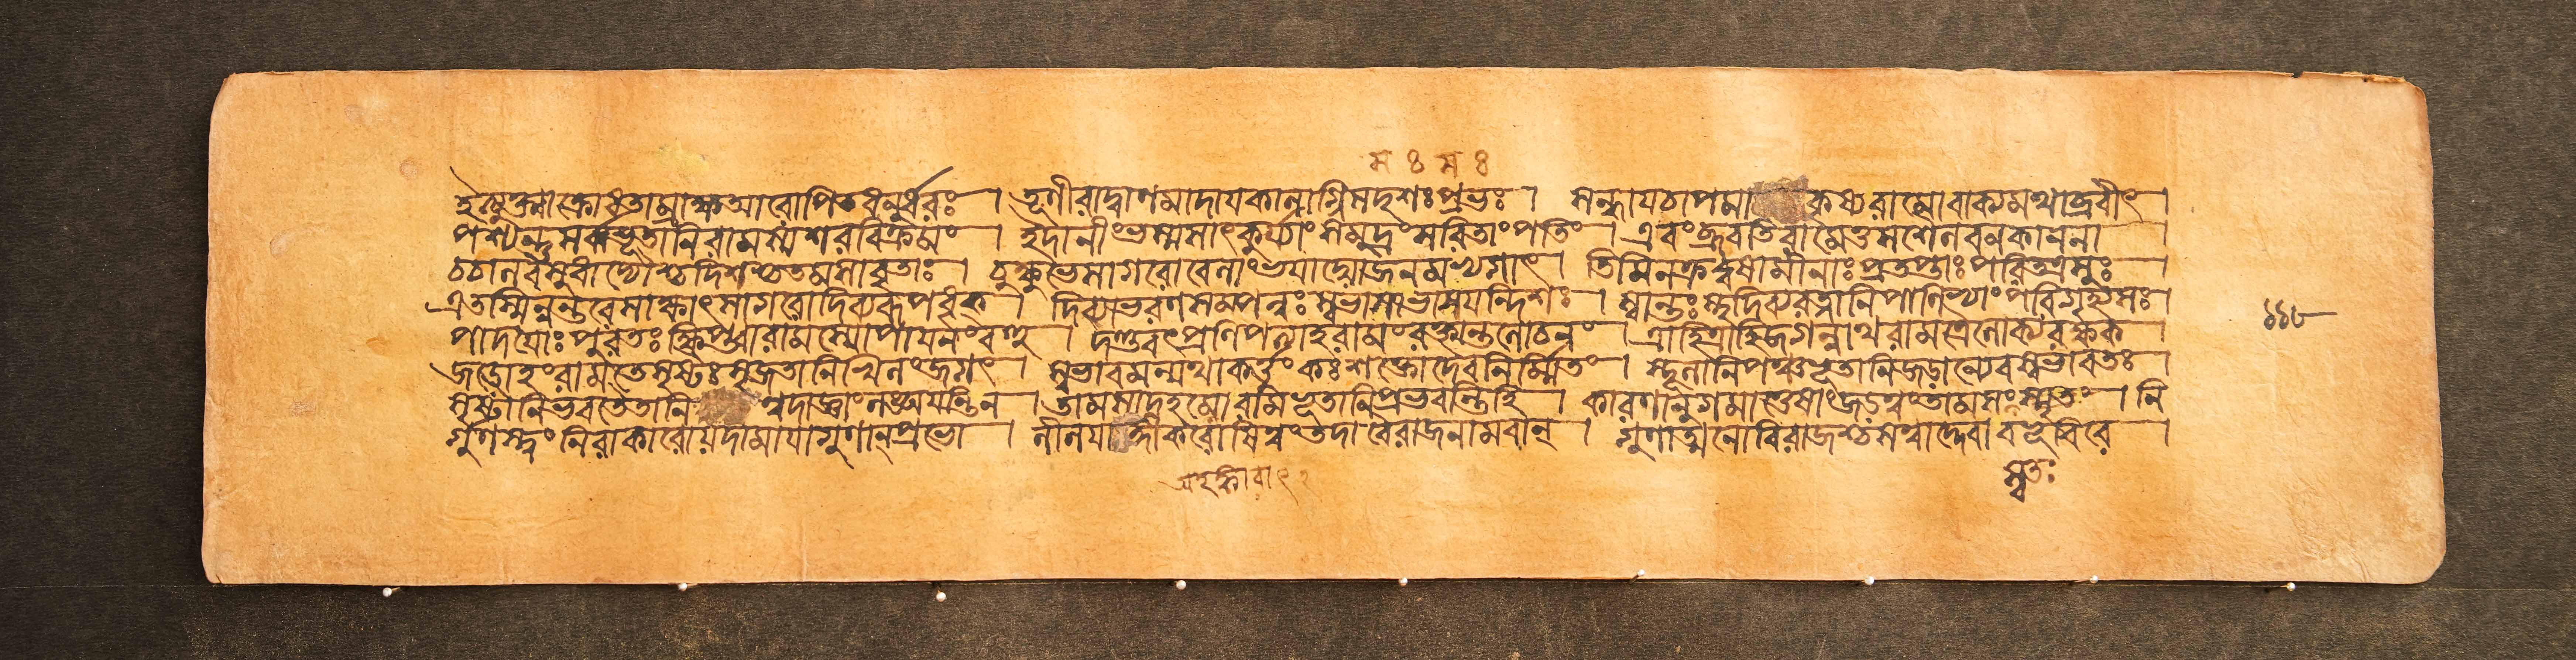 ম ঃ ম ঃ
ইত্যুক্ত্বা ক্রোধতাম্রাক্ষ আরোপিতধনুর্ধরঃ । তূণীরাদ্বাণমাদায কালাগ্নিসদৃশঃ প্রভঃ । সন্ধায চাপমাকৃষ্য রামো বাক্যমথাব্রবীৎ ।
পশ্যন্তু সর্বভূতানি রামস্য শরবিক্রমং । ইদানীং ভস্মসাৎ কুর্য্যাং সমুদ্রং সরিতাং পতিং । এবং ব্রুবতি রামে তু সশৈলবনকাননা ।
চচাল বসুধা দ্যৌশ্চ দিশশ্চ তমসাবৃতাঃ । চুক্ষুভে সাগরো বেলাং ভযাদ্যোজনমত্যগাৎ । তিমিনক্রঝষা মীনাঃ প্রতপ্তাঃ পরিতত্রসুঃ ।
এতস্মিন্নন্তরে সাক্ষাৎ সাগরো দিব্যরূপধৃক্ । দিব্যাভরণসম্পন্নঃ স্বভাসা ভাসযন্দিশঃ । স্বান্তঃস্থদিব্যরত্নানি পাণিভ্যাং পরিগৃহ্য সঃ ।
পাদযোঃ পুরতঃ ক্ষিপ্ত্বা রামস্যোপাযনং বহু । দণ্ডবৎ প্রণিপত্যাহ রামং রক্তান্তলোচনং । ত্রাহি ত্রাহি জগন্নাথ রাম ত্রৈলোক্যরক্ষক ।
জডোহং রাম তে সৃষ্টঃ সৃজতা নিখিলং জগৎ । স্বভাবমন্যথা কর্তুং কঃ শক্তো দেবনির্ম্মিতং । স্থূলানি পঞ্চভূতানি জডান্যেব স্বভাবতঃ ।
সৃষ্টানি ভবতৈতানি ত্বদাজ্ঞাং লঙ্ঘযন্তি ন । তামসাদহমো রাম ভূতানি প্রভবন্তি হি । কারণানুগমাত্তেষাং জডত্বং তামসং স্মৃতং । নি
র্গুণস্ত্বং নিরাকারো যদা মাযাগুণান্ প্রভো । লীলযাঙ্গীকরোষি ত্বং তদা বৈরাজনামবান্ । গুণাত্মনো বিরাজশ্চ সত্ত্বাদ্দেবা বভূবিরে ।
স্বতঃ
১১৮